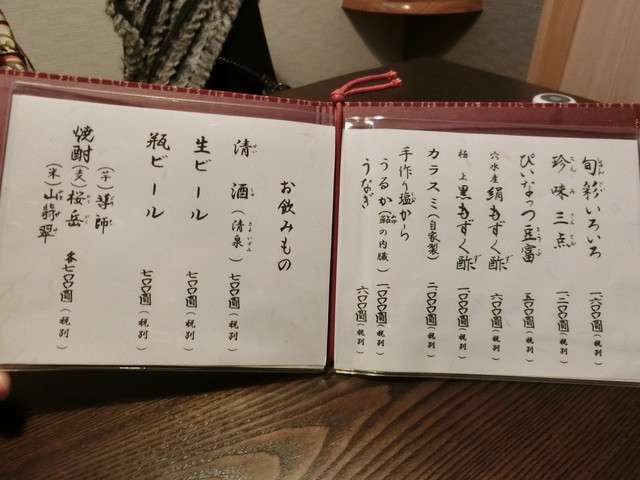 旬彩いろいろ 一、六〇〇圓(税別)
珍味三点 一、三〇〇圓(税別)
ぴいなっつ豆富 五〇〇圓(税別)
穴水産 絹もずく酢 六〇〇圓(税別)
極上黒もずく酢 一、〇〇〇圓(税別)
カラスミ(自家製) 二、〇〇〇圓(税別)
手作り塩から
うるか(鮎の内臓) 一、〇〇〇圓(税別)
うなぎ 六〇〇圓(税別)
お飲みもの
清酒(清泉) 七〇〇圓(税別)
生ビール 七〇〇圓(税別)
瓶ビール 七〇〇圓(税別)
焼酎
(芋)導師
(麦)桜岳
(米)山翡翠
各七〇〇圓(税別)